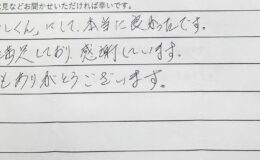 見などお聞かせいただければ幸いです。
しくん」にして、本当に良かったです。
満足しており、感謝しています。
もありがとうございます。